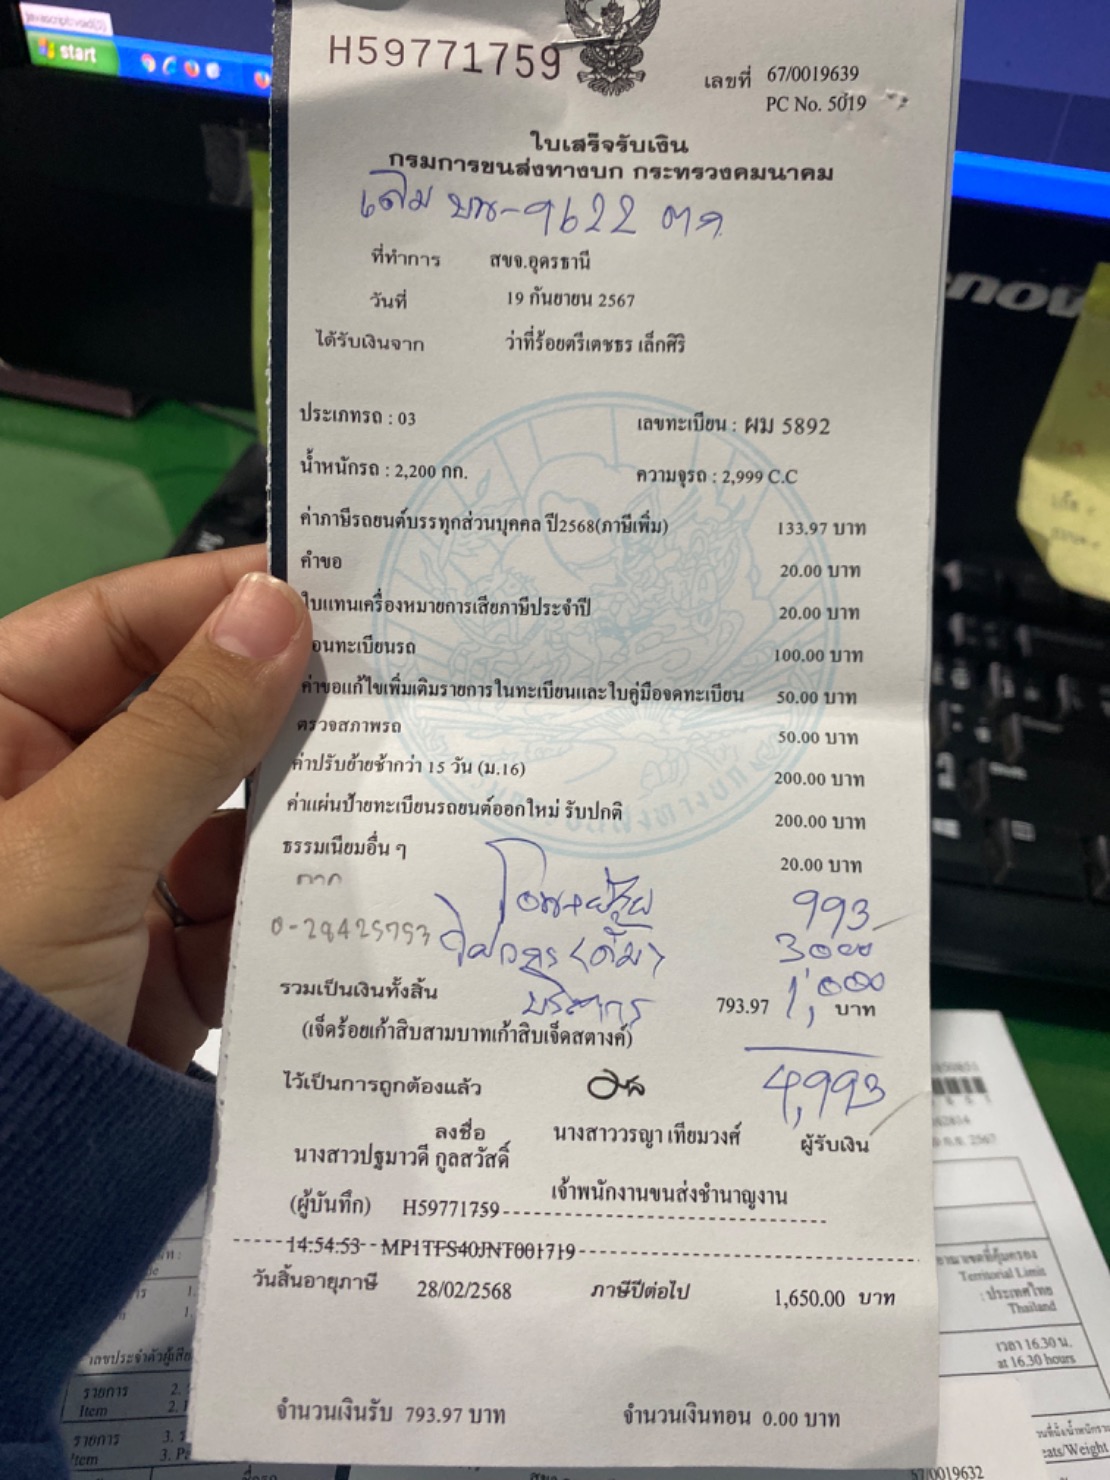 start
H59771759
เลขที่ 67/0019639
PC No. 5019
ใบเสร็จรับเงิน
กรมการขนส่งทางบก กระทรวงคมนาคม
เดิม บน-9622 ตก
ที่ทำการ สขจ.อุดรธานี
วันที่ 19 กันยายน 2567
ได้รับเงินจาก ว่าที่ร้อยตรีเตชธร เล็กศิริ
ประเภทรถ : 03 เลขทะเบียน : ผม 5892
น้ำหนักรถ : 2,200 กก. ความจุรถ : 2,999 C.C
ค่าภาษีรถยนต์บรรทุกส่วนบุคคล ปี2568(ภาษีเพิ่ม) 133.97 บาท
คำขอ 20.00 บาท
ใบแทนเครื่องหมายการเสียภาษีประจำปี 20.00 บาท
โอนทะเบียนรถ 100.00 บาท
ค่าขอแก้ไขเพิ่มเติมรายการในทะเบียนและใบคู่มือจดทะเบียน 50.00 บาท
ตรวจสภาพรถ 50.00 บาท
ค่าปรับย้ายช้ากว่า 15 วัน (ม.16) 200.00 บาท
ค่าแผ่นป้ายทะเบียนรถยนต์ออกใหม่ รับปกติ 200.00 บาท
ธรรมเนียมอื่น ๆ 20.00 บาท
ตาก
993
0-28425753
วิศวกร (ดั้ม) 3000
บริการ 1,000
รวมเป็นเงินทั้งสิ้น 793.97 บาท
(เจ็ดร้อยเก้าสิบสามบาทเก้าสิบเจ็ดสตางค์)
ไว้เป็นการถูกต้องแล้ว 4,993
ลงชื่อ นางสาววรญา เทียมวงศ์ ผู้รับเงิน
นางสาวปฐมาวดี กูลสวัสดิ์
(ผู้บันทึก) H59771759 เจ้าพนักงานขนส่งชำนาญงาน
14:54:53 MP1TFS40JNT001719
วันสิ้นอายุภาษี 28/02/2568 ภาษีปีต่อไป 1,650.00 บาท
จำนวนเงินรับ 793.97 บาท จำนวนเงินทอน 0.00 บาท
Territorial Limit
: ประเทศไทย
Thailand
เวลา 16.30 น.
at 16.30 hours
รายการ 2.
Item 2.
รายการ 3.
Item 3.
67/0019632